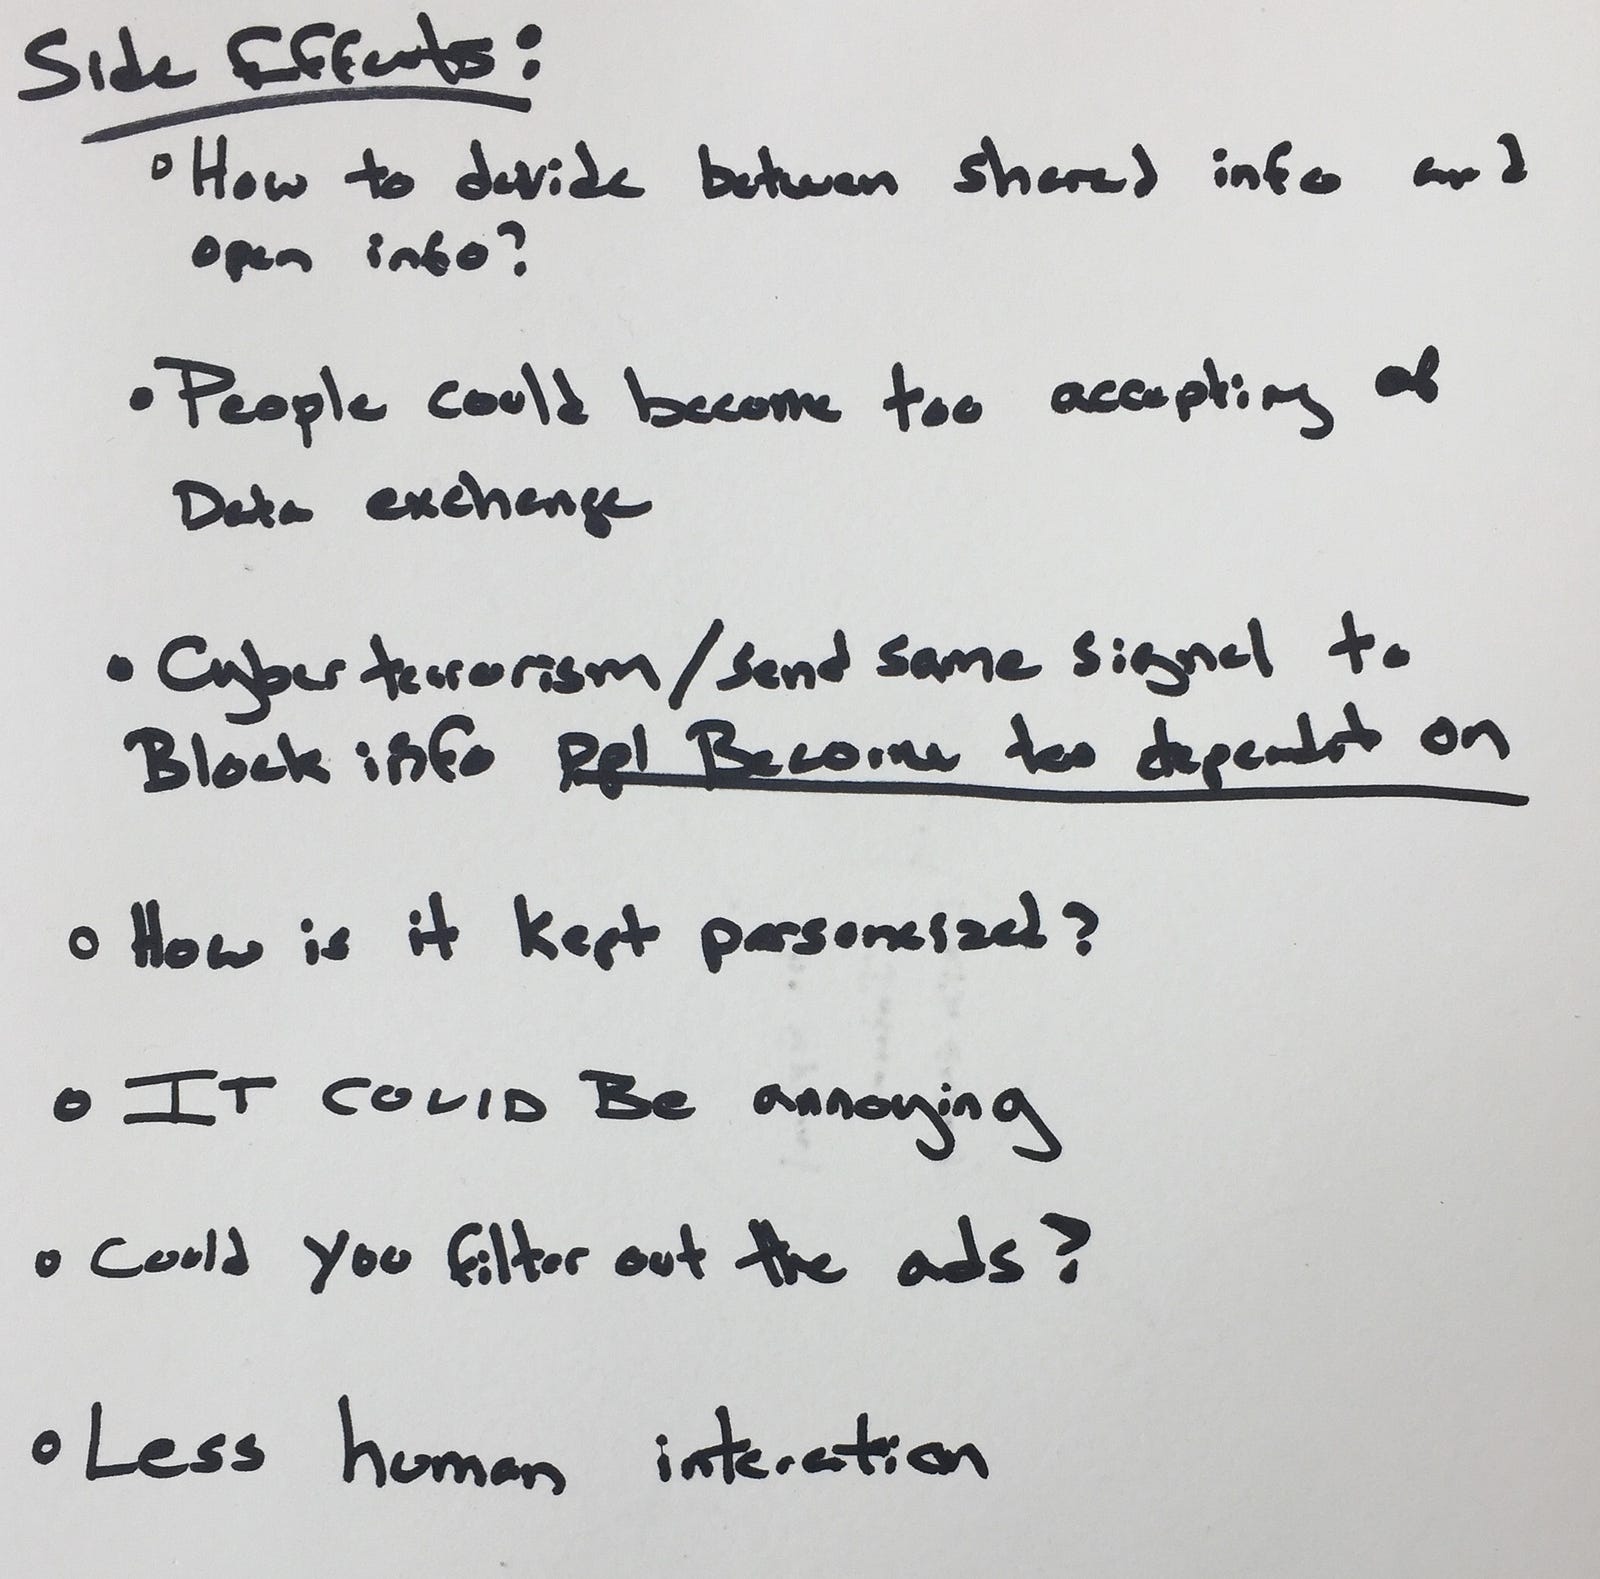 Side Effects:
° How to devide between shared info and
open info?
• People could become too accepting of
Data exchange
• Cyber terrorism/send same signal to
Block info Ppl Become too dependt on
° How is it kept personeized?
° IT COULD Be annoying
° Could you filter out the ads?
° Less human interation